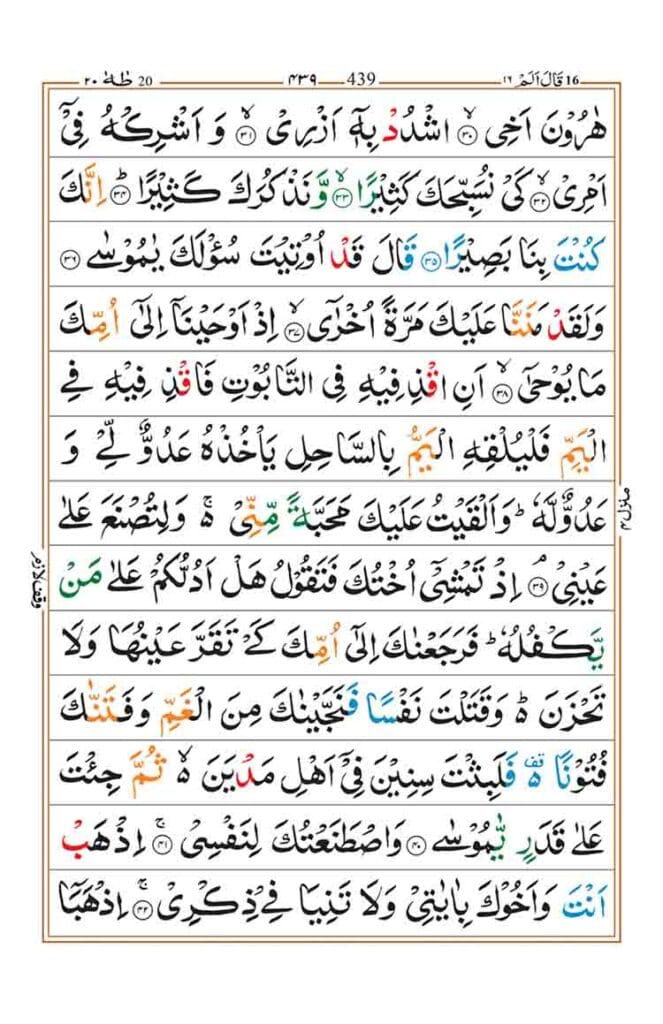 16 قَالَ اَلَمْ ١٦ 439 ٤٣٩ 20 طٰهٰ ٢٠
هٰرُوْنَ اَخِی ۙ﴿٣٠﴾ اشْدُدْ بِهٖۤ اَزْرِیْ ۙ﴿٣١﴾ وَ اَشْرِكْهُ فِیْۤ
اَمْرِیْ ۙ﴿٣٢﴾ كَیْ نُسَبِّحَكَ كَثِیْرًا ۙ﴿٣٣﴾ وَّنَذْكُرَكَ كَثِیْرًا ؕ﴿٣٤﴾ اِنَّكَ
كُنْتَ بِنَا بَصِیْرًا ﴿٣٥﴾ قَالَ قَدْ اُوْتِیْتَ سُؤْلَكَ یٰمُوْسٰی ﴿٣٦﴾
وَلَقَدْ مَنَنَّا عَلَیْكَ مَرَّةً اُخْرٰۤی ۙ﴿٣٧﴾ اِذْ اَوْحَیْنَاۤ اِلٰۤی اُمِّكَ
مَا یُوْحٰۤی ۙ﴿٣٨﴾ اَنِ اقْذِفِیْهِ فِی التَّابُوْتِ فَاقْذِ فِیْهِ فِی
الْیَمِّ فَلْیُلْقِهِ الْیَمُّ بِالسَّاحِلِ یَاْخُذْهُ عَدُوٌّ لِّیْ وَ
عَدُوٌّ لَّهٗ ؕ وَاَلْقَیْتُ عَلَیْكَ مَحَبَّةً مِّنِّیْ ۬ۚ وَلِتُصْنَعَ عَلٰی
عَیْنِیْ ۘ﴿٣٩﴾ اِذْ تَمْشِیْۤ اُخْتُكَ فَتَقُوْلُ هَلْ اَدُلُّكُمْ عَلٰی مَنْ
یَّكْفُلُهٗ ؕ فَرَجَعْنٰكَ اِلٰۤی اُمِّكَ كَیْ تَقَرَّ عَیْنُهَا وَلَا
تَحْزَنَ ۬ؕ وَقَتَلْتَ نَفْسًا فَنَجَّیْنٰكَ مِنَ الْغَمِّ وَفَتَنّٰكَ
فُتُوْنًا ۬۫ فَلَبِثْتَ سِنِیْنَ فِیْۤ اَهْلِ مَدْیَنَ ۬ۙ ثُمَّ جِئْتَ
عَلٰی قَدَرٍ یّٰمُوْسٰی ﴿٤٠﴾ وَاصْطَنَعْتُكَ لِنَفْسِیْ ۚ﴿٤١﴾ اِذْهَبْ
اَنْتَ وَاَخُوْكَ بِاٰیٰتِیْ وَلَا تَنِیَا فِیْ ذِكْرِیْ ۚ﴿٤٢﴾ اِذْهَبَاۤ
منزل ٤
وقف لازم